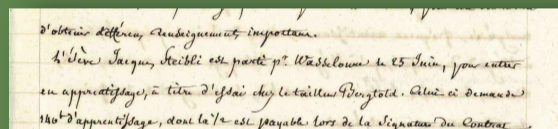 d'obtenir différens renseignements importans.
L'Élève Jacques Steibli est parti pr. Wasselonne le 25 Juin, pour entrer
en apprentissage, à titre d'essai chez le tailleur Bergtold. Celui-ci demande
140f d'apprentissage, dont la 1/2 est payable lors de la Signature du Contrat